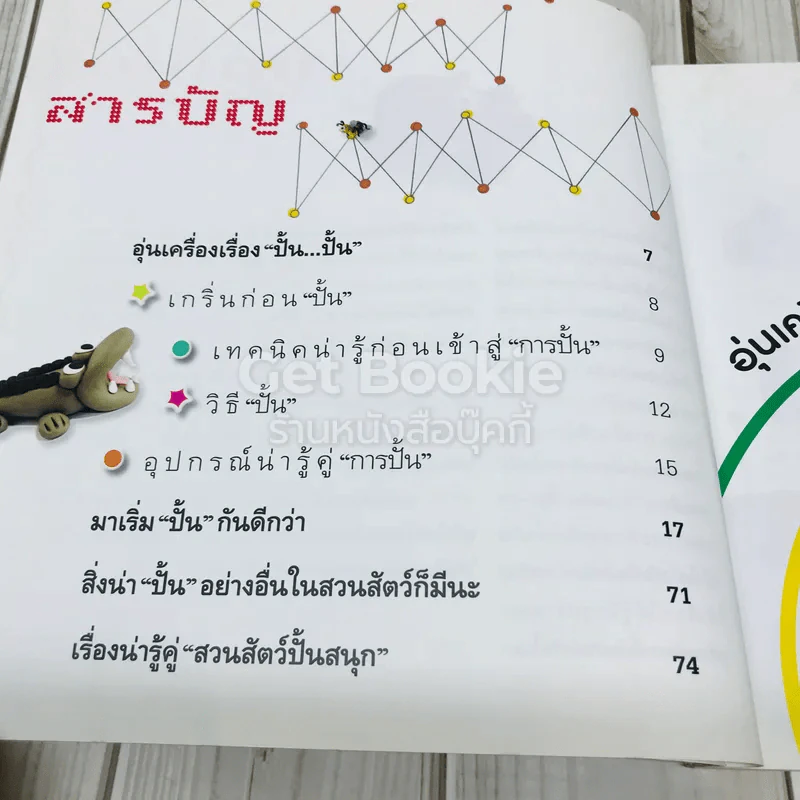 สารบัญ
อุ่นเครื่องเรื่อง “ปั้น...ปั้น” 7
เกริ่นก่อน “ปั้น” 8
เทคนิคน่ารู้ก่อนเข้าสู่ “การปั้น” 9
Get Bookie
วิธี “ปั้น” 12
ร้านหนังสือบุ๊คกี้
อุปกรณ์น่ารู้คู่ “การปั้น” 15
มาเริ่ม “ปั้น” กันดีกว่า 17
สิ่งน่า “ปั้น” อย่างอื่นในสวนสัตว์ก็มีนะ 71
เรื่องน่ารู้คู่ “สวนสัตว์ปั้นสนุก” 74